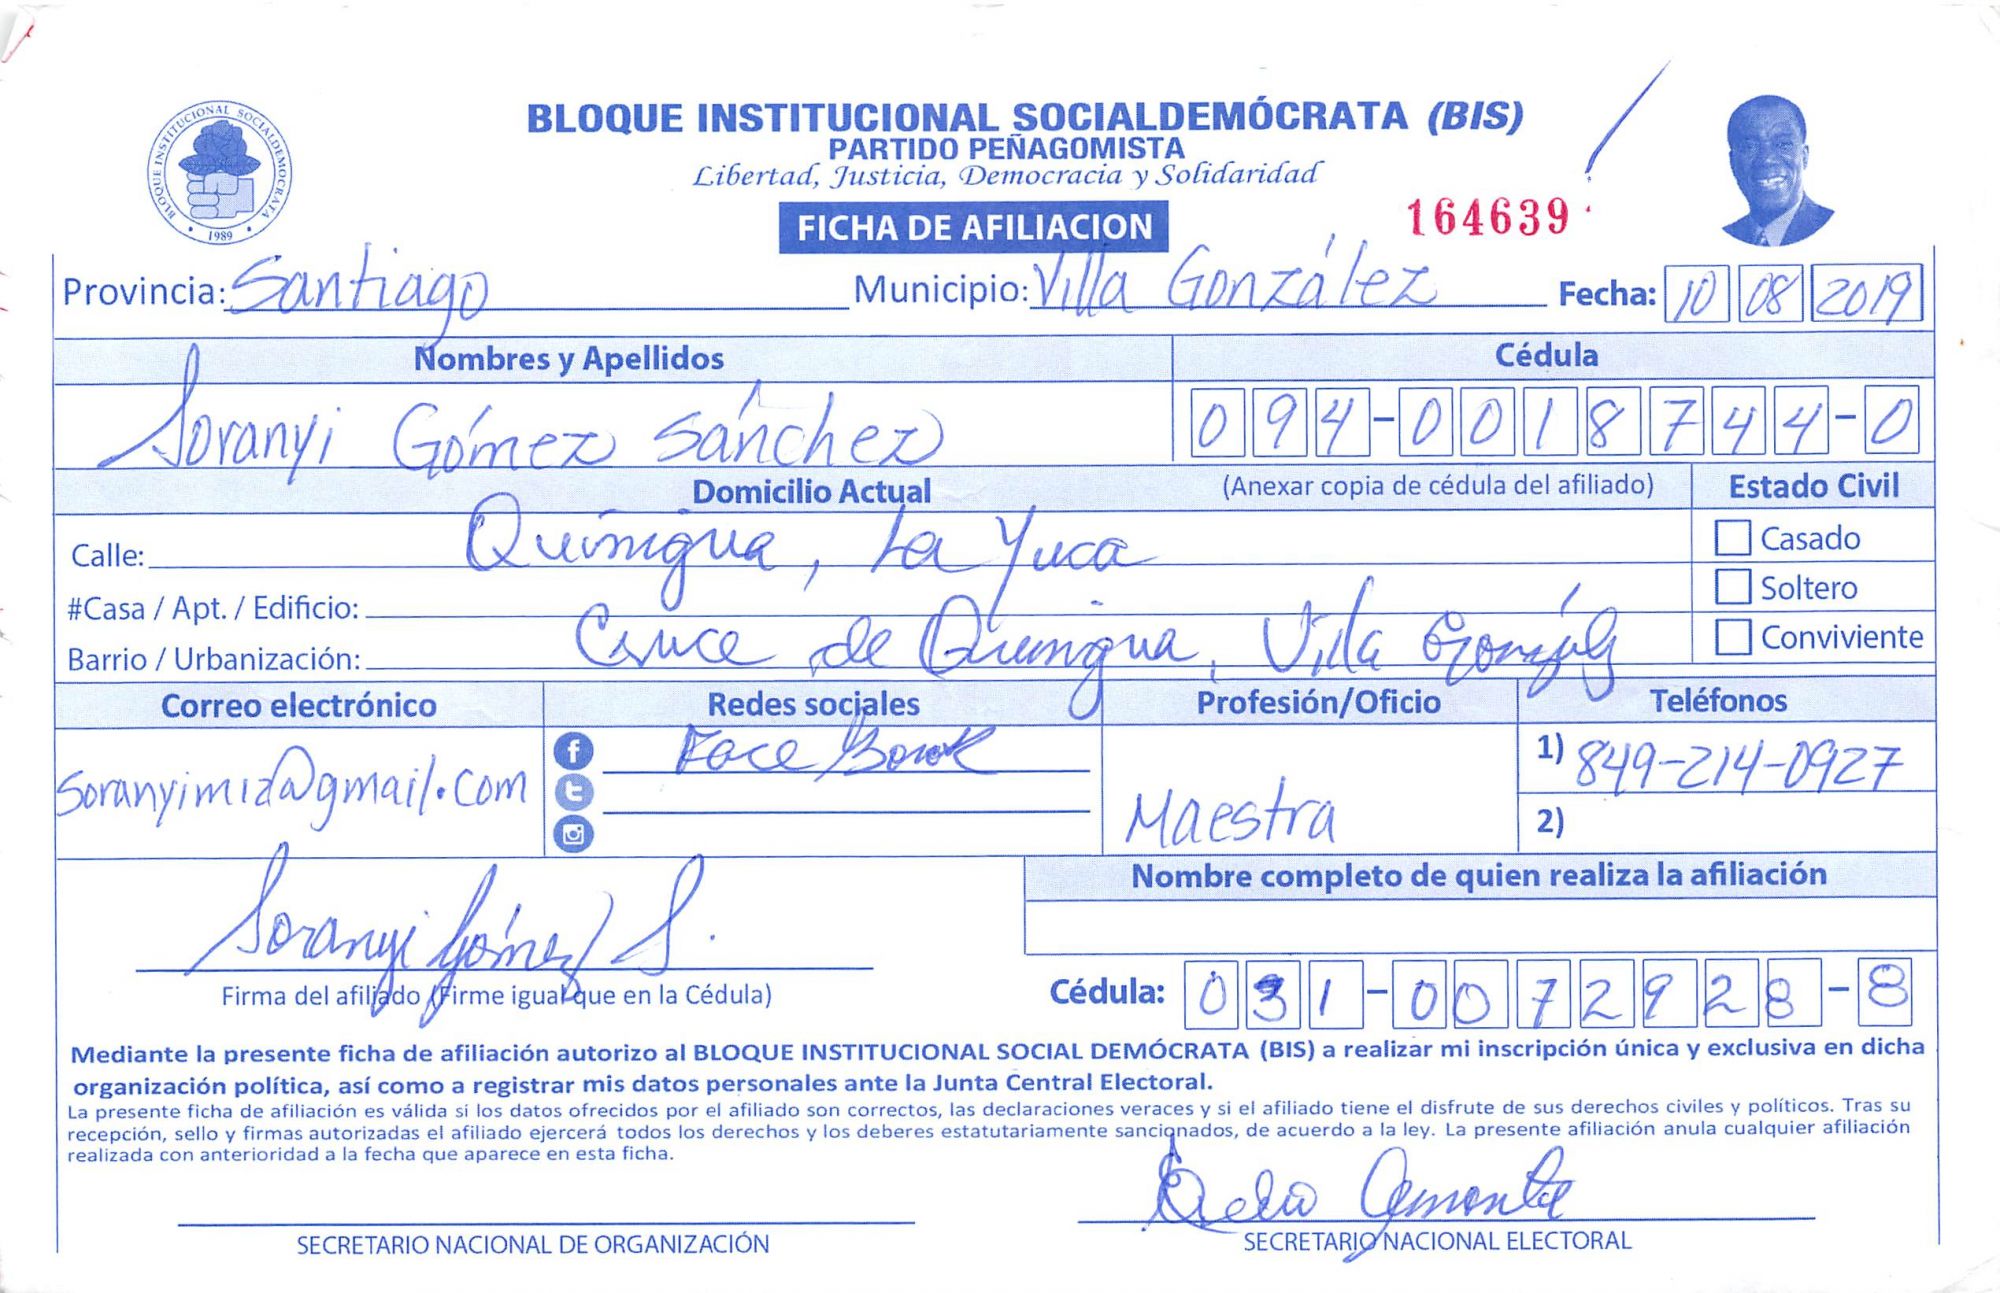 BLOQUE INSTITUCIONAL SOCIALDEMOCRATA
1989
BLOQUE INSTITUCIONAL SOCIALDEMÓCRATA (BIS)
PARTIDO PEÑAGOMISTA
Libertad, Justicia, Democracia y Solidaridad
FICHA DE AFILIACION
164639
Provincia: Santiago Municipio: Villa González Fecha: 10 08 2019
Nombres y Apellidos Cédula
Soranyi Gómez Sánchez 094-0018744-0
Domicilio Actual (Anexar copia de cédula del afiliado) Estado Civil
Calle: Quinigua, La Yuca Casado
#Casa / Apt. / Edificio: Soltero
Barrio / Urbanización: Cruce de Quinigua, Villa González Conviviente
Correo electrónico Redes sociales Profesión/Oficio Teléfonos
soranyimiza@gmail.com Face Book Maestra 1) 849-214-0927
2)
Nombre completo de quien realiza la afiliación
Soranyi Gómez S.
Firma del afiliado (Firme igual que en la Cédula) Cédula: 031-0072928-8
Mediante la presente ficha de afiliación autorizo al BLOQUE INSTITUCIONAL SOCIAL DEMÓCRATA (BIS) a realizar mi inscripción única y exclusiva en dicha
organización política, así como a registrar mis datos personales ante la Junta Central Electoral.
La presente ficha de afiliación es válida si los datos ofrecidos por el afiliado son correctos, las declaraciones veraces y si el afiliado tiene el disfrute de sus derechos civiles y políticos. Tras su
recepción, sello y firmas autorizadas el afiliado ejercerá todos los derechos y los deberes estatutariamente sancionados, de acuerdo a la ley. La presente afiliación anula cualquier afiliación
realizada con anterioridad a la fecha que aparece en esta ficha.
SECRETARIO NACIONAL DE ORGANIZACIÓN SECRETARIO NACIONAL ELECTORAL